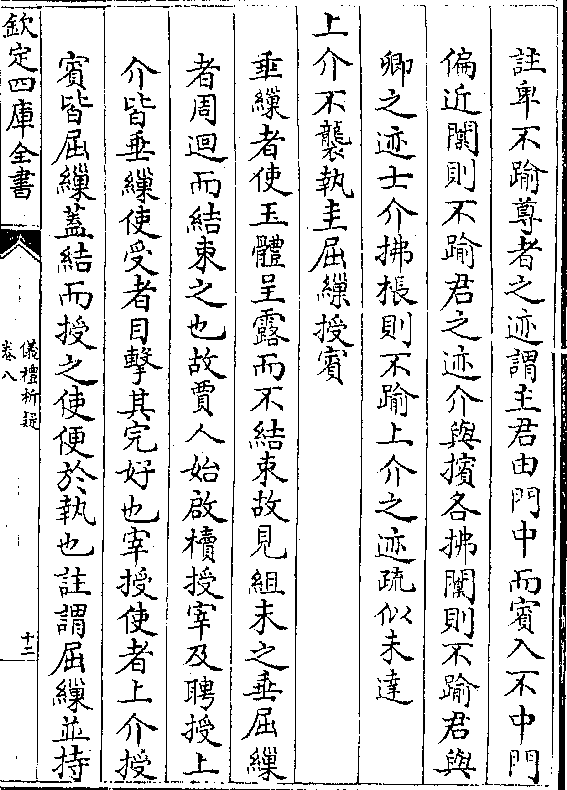 註卑不踰尊者之迹謂主君由門中而賓入不中門
偏近闑則不踰君之迹介與擯各拂闑則不踰君與
卿之迹士介拂棖則不踰上介之迹疏似未達
上介不襲執圭屈繅授賓
垂繅者使玉體呈露而不結束故見組末之垂屈繅
者周迴而結束之也故賈人始啟櫝授宰及聘授上
介皆垂繅使受者目擊其完好也宰授使者上介授
賓皆屈繅蓋結而授之使便於執也註謂屈繅並持
欽定四庫全書
儀禮析疑
卷八
十二